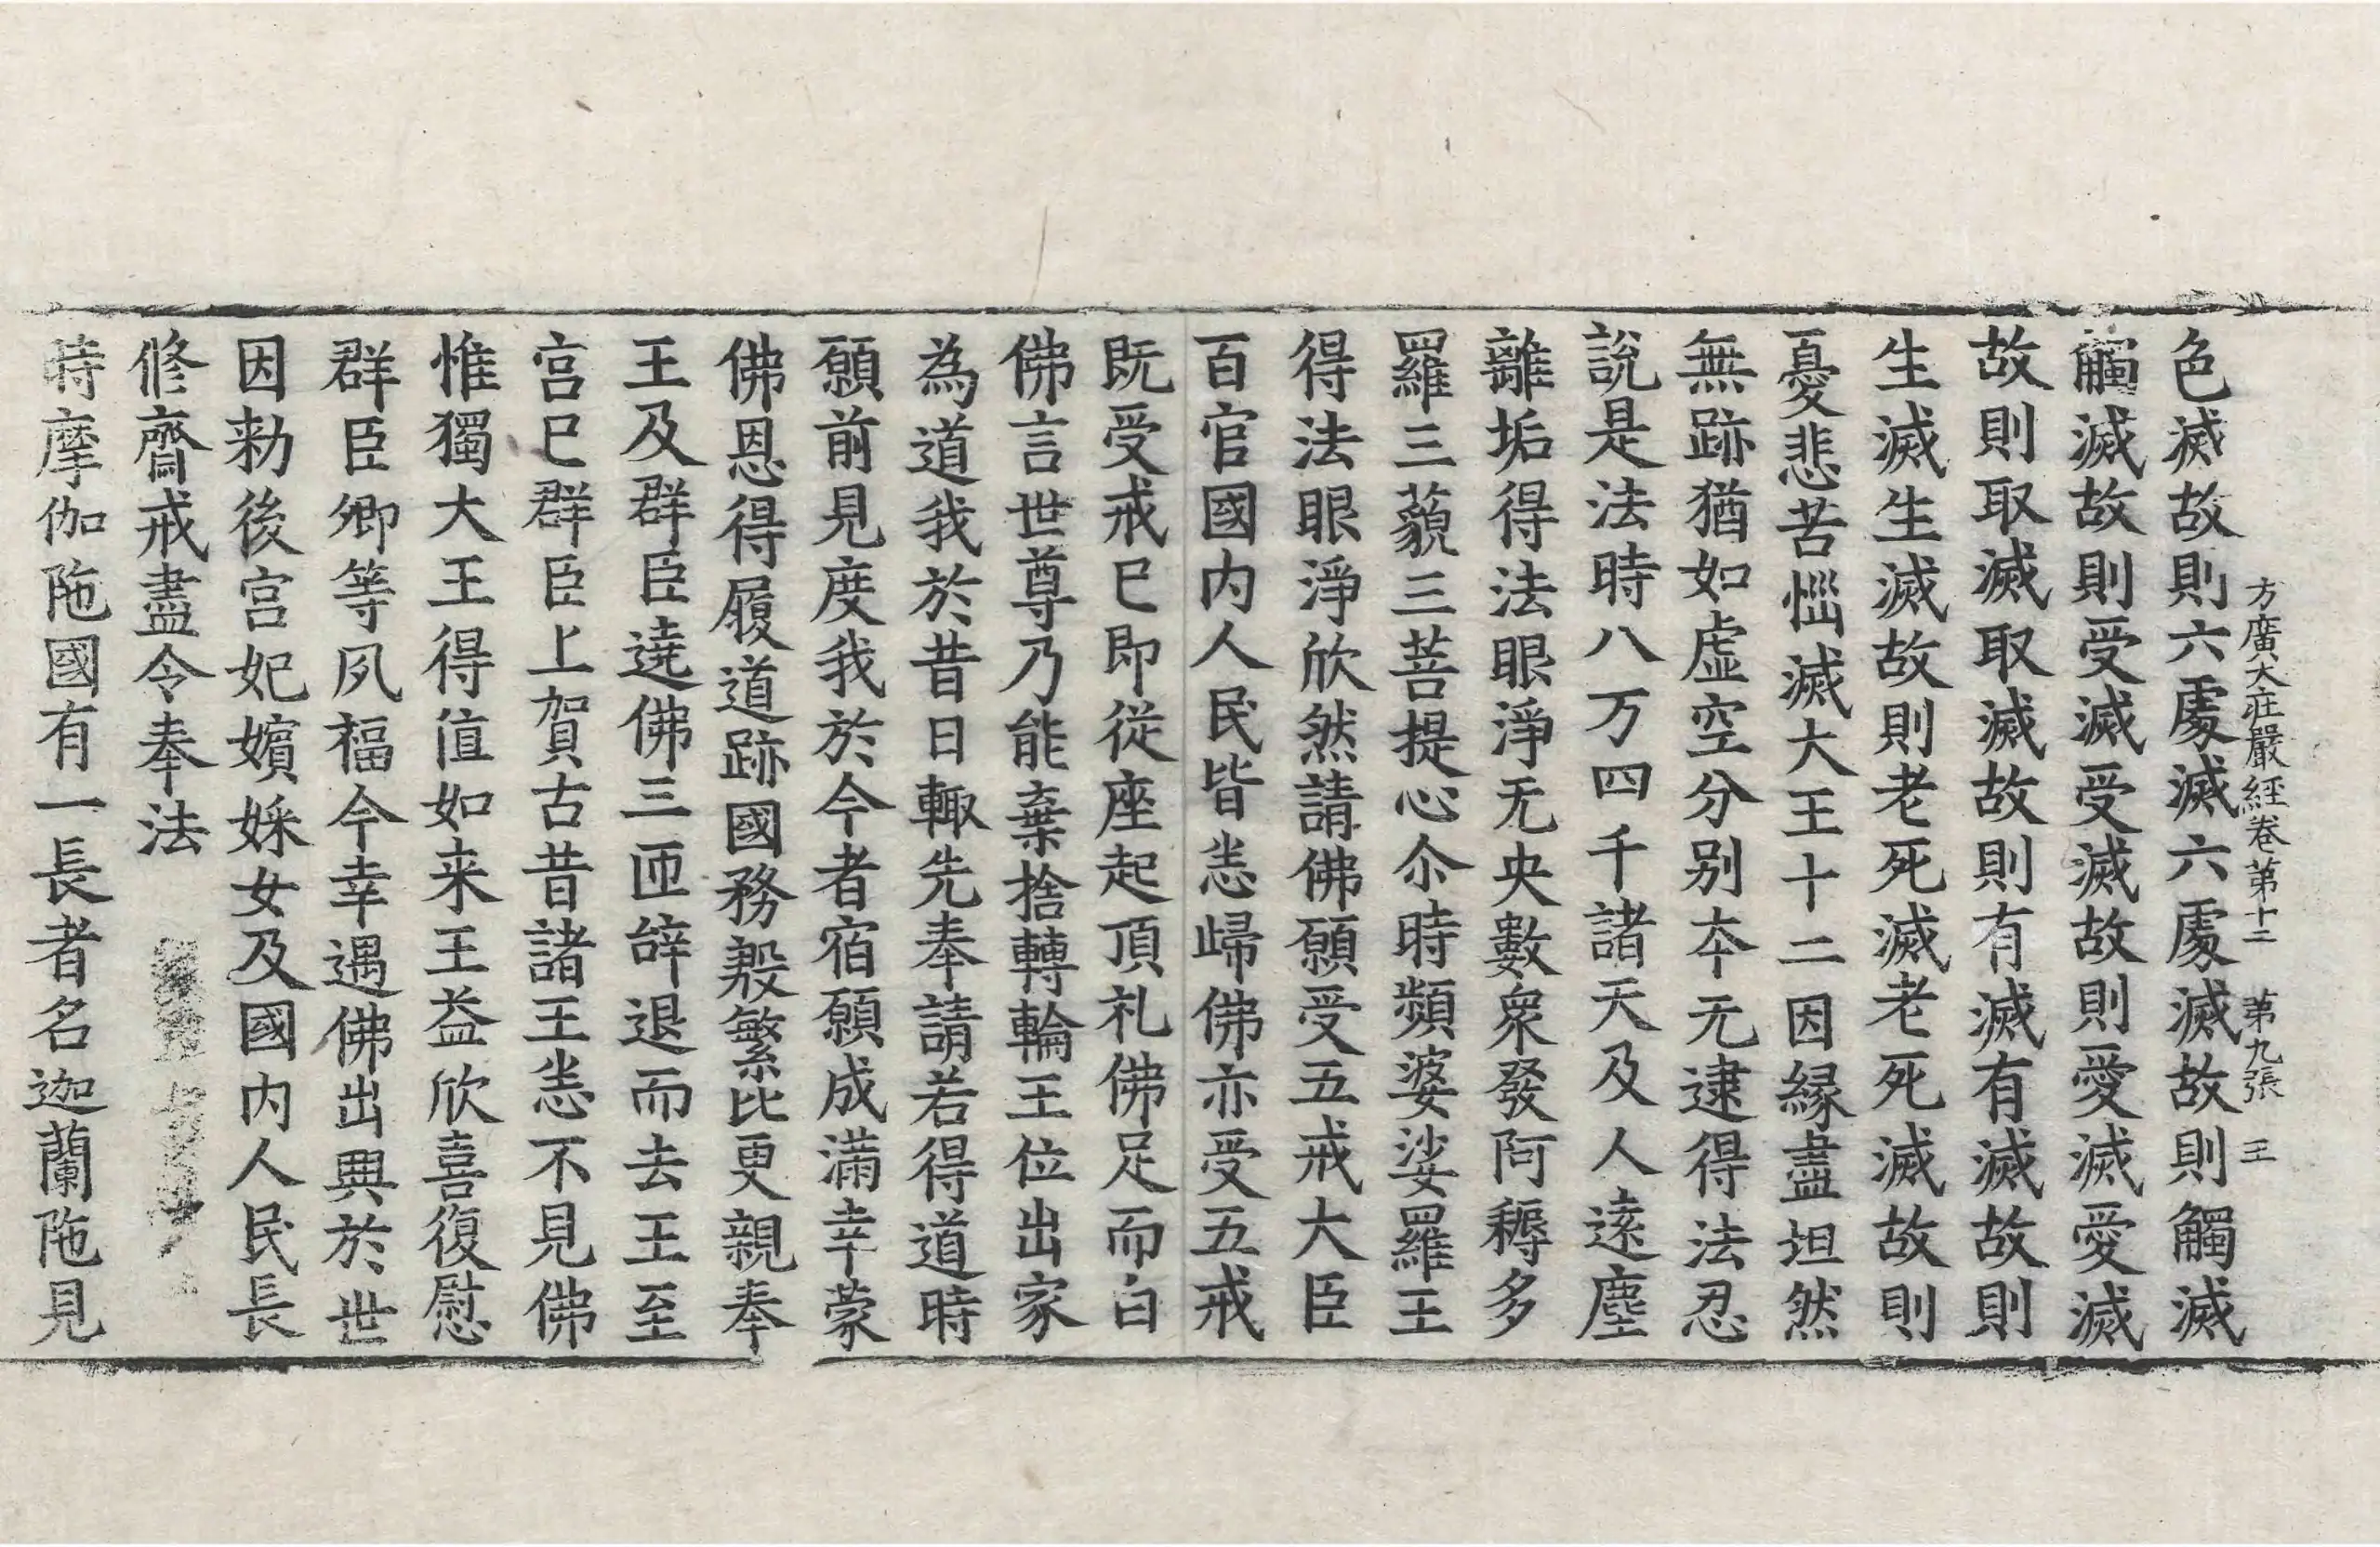 方廣大莊嚴經卷第十二　第九張　王
色滅故則六處滅六處滅故則觸滅
觸滅故則受滅受滅故則愛滅愛滅
故則取滅取滅故則有滅有滅故則
生滅生滅故則老死滅老死滅故則
憂悲苦惱滅大王十二因緣盡坦然
無跡猶如虛空分別本无逮得法忍
說是法時八万四千諸天及人遠塵
離垢得法眼淨无央數衆發阿耨多
羅三藐三菩提心尒時頻婆娑羅王
得法眼淨欣然請佛願受五戒大臣
百官國内人民皆悉歸佛亦受五戒
既受戒已即從座起頂礼佛足而白
佛言世尊乃能棄捨轉輪王位出家
為道我於昔日輙先奉請若得道時
願前見度我於今者宿願成滿幸蒙
佛恩得履道跡國務殷繁比更親奉
王及群臣遶佛三匝辝退而去王至
宮已群臣上賀古昔諸王悉不見佛
惟獨大王得值如来王益欣喜復慰
群臣卿等夙福今幸遇佛出興於世
因勑後宮妃嬪婇女及國内人民長
修齋戒盡令奉法
時摩伽陁國有一長者名迦蘭陁見